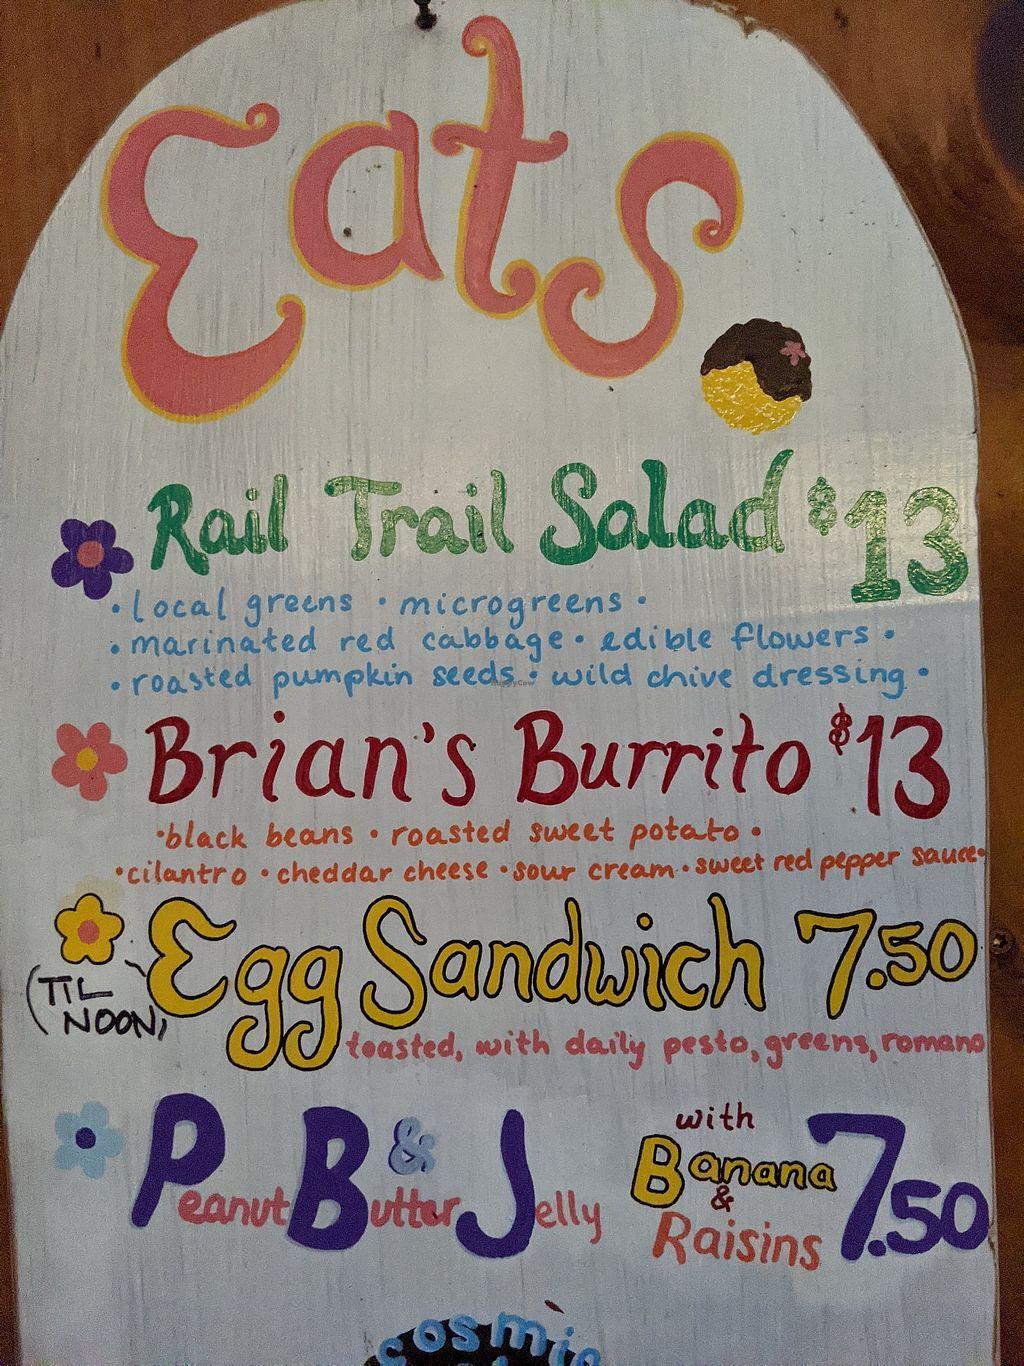 Eats
Rail Trail Salad $13
• local greens • microgreens •
• marinated red cabbage • edible flowers •
• roasted pumpkin seeds • wild chive dressing •
HappyCow
Brian's Burrito $13
• black beans • roasted sweet potato •
• cilantro • cheddar cheese • sour cream • sweet red pepper sauce •
Egg Sandwich 7.50
(TIL NOON)
toasted, with daily pesto, greens, romano
Peanut Butter & Jelly with Banana & Raisins 7.50
cosmic